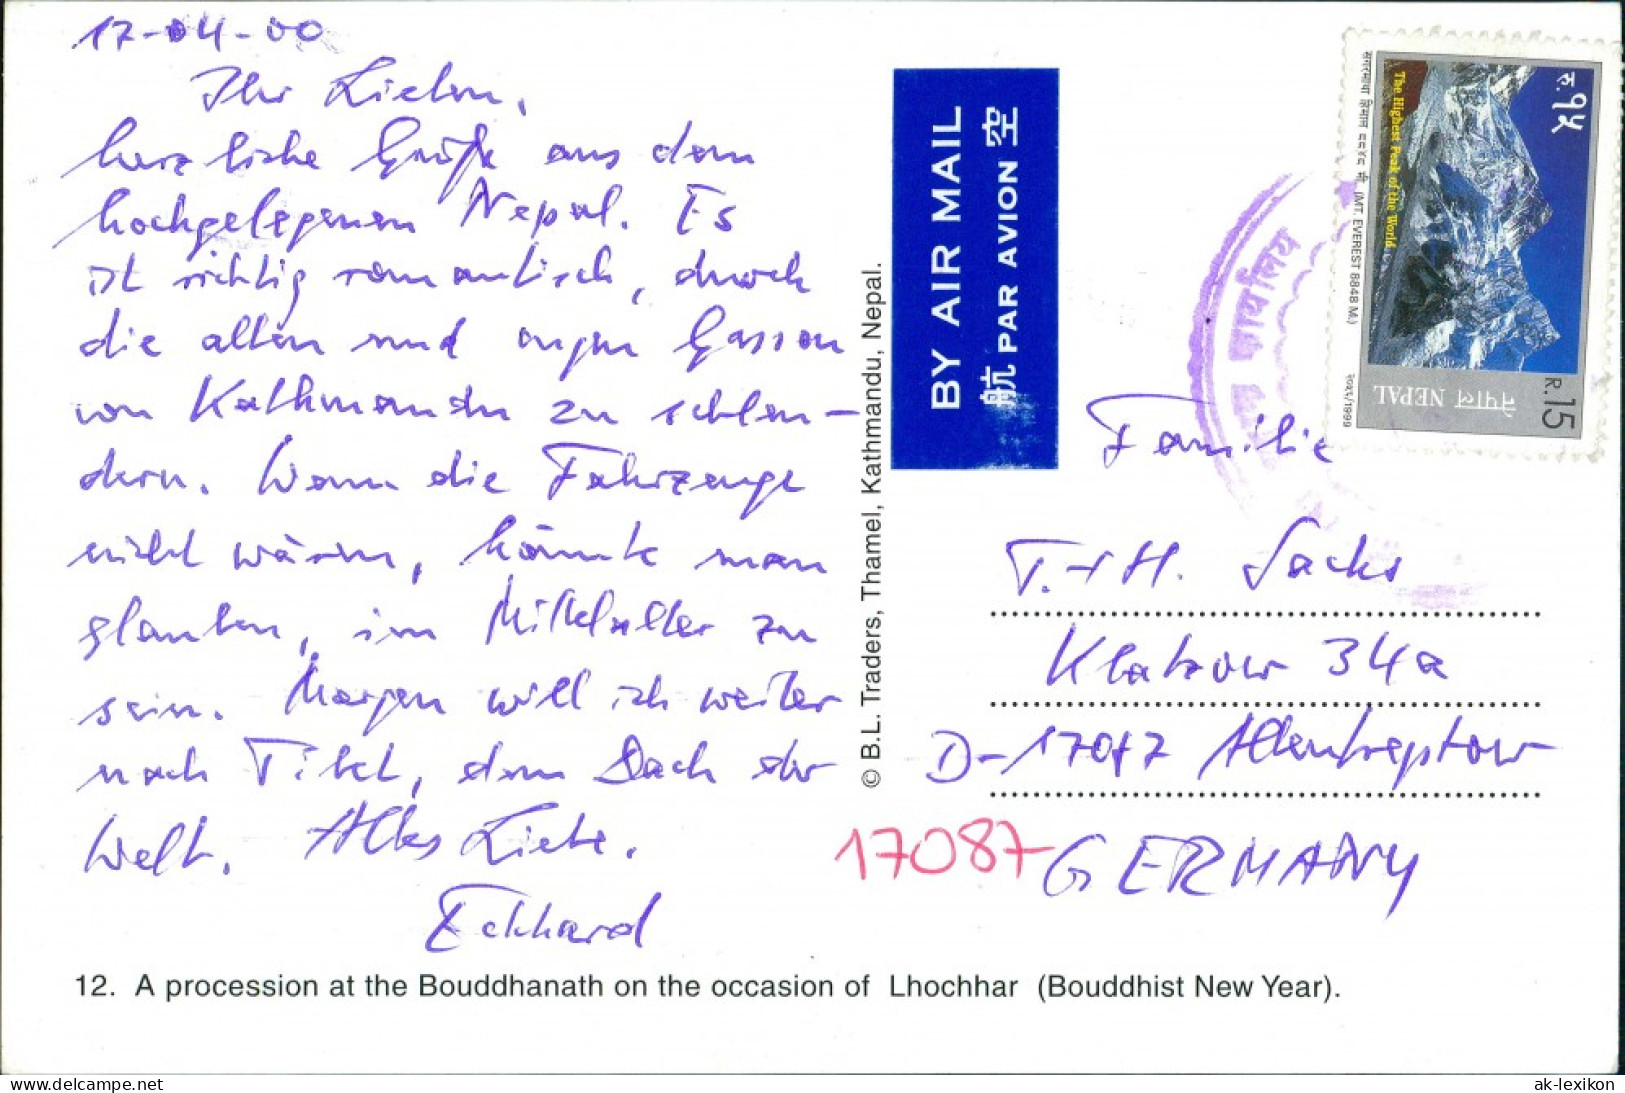 17-04-00
Ihr Lieben,
herzliche Grüße aus dem
hochgelegenen Nepal. Es
ist richtig romantisch, durch
die alten und engen Gassen
von Kathmandu zu schlen-
dern. Wenn die Fahrzeuge
nicht wären, könnte man
glauben, im Mittelalter zu
sein. Morgen will ich weiter
nach Tibet, dem Dach der
Welt. Alles Liebe.
Eckhard
12. A procession at the Bouddhanath on the occasion of Lhochhar (Bouddhist New Year).
© B.L. Traders, Thamel, Kathmandu, Nepal.
BY AIR MAIL
航 PAR AVION 空
रु. १५
The Highest Peak of the World
सगरमाथा हिमाल ८८४८ मी. (MT. EVEREST 8848 M.)
२०५६/1999
नेपाल NEPAL
R.15
कार्यालय
Familie
T. + H. Sachs
Klatzow 34a
D-17087 Altentreptow
17087 GERMANY
www.delcampe.net
ak-lexikon